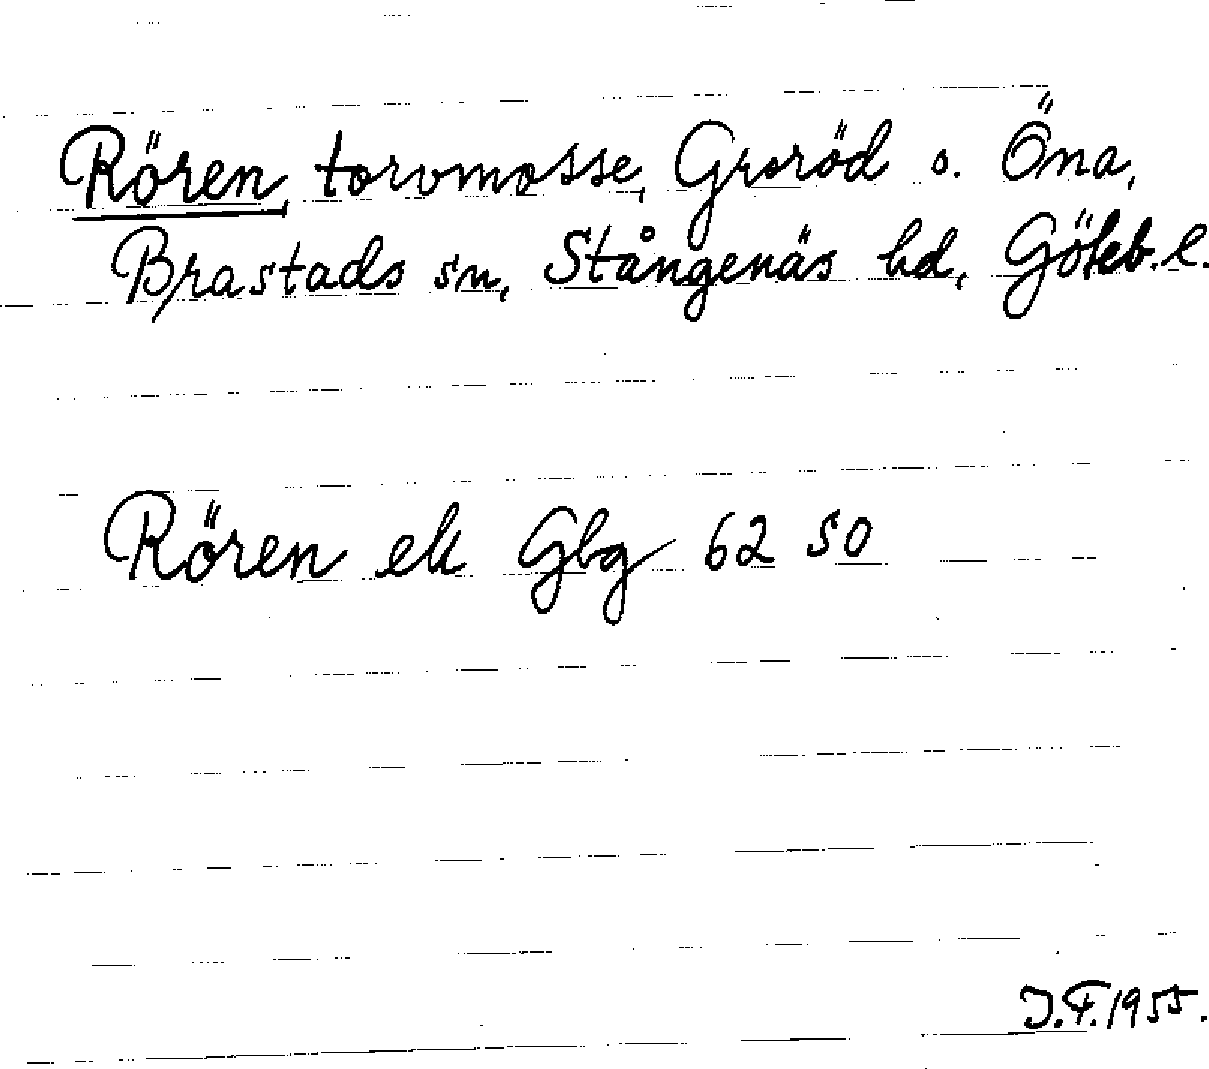 Rören, torvmosse, Groröd o. Öna,
Brastads sn, Stångenäs hd, Göteb. l.
Rören ek Gbg 62 SO
J.F. 1955.